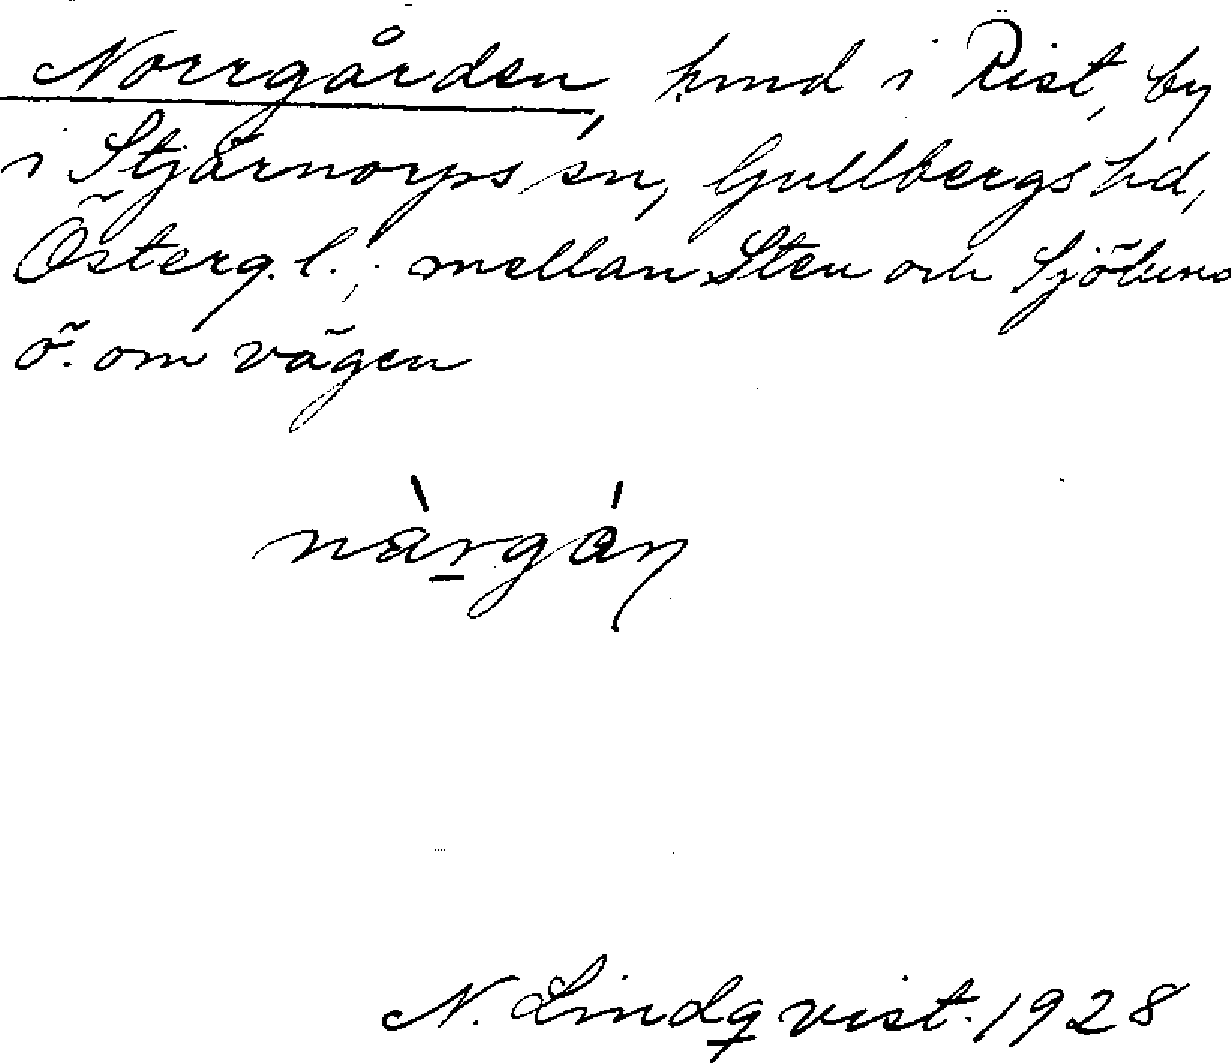 Norrgården, hmd i Rist, by
i Stjärnorps sn, Gullbergs hd,
Österg. l.; mellan Sten och
ö. om vägen
nàrgán
N. Lindqvist. 1928